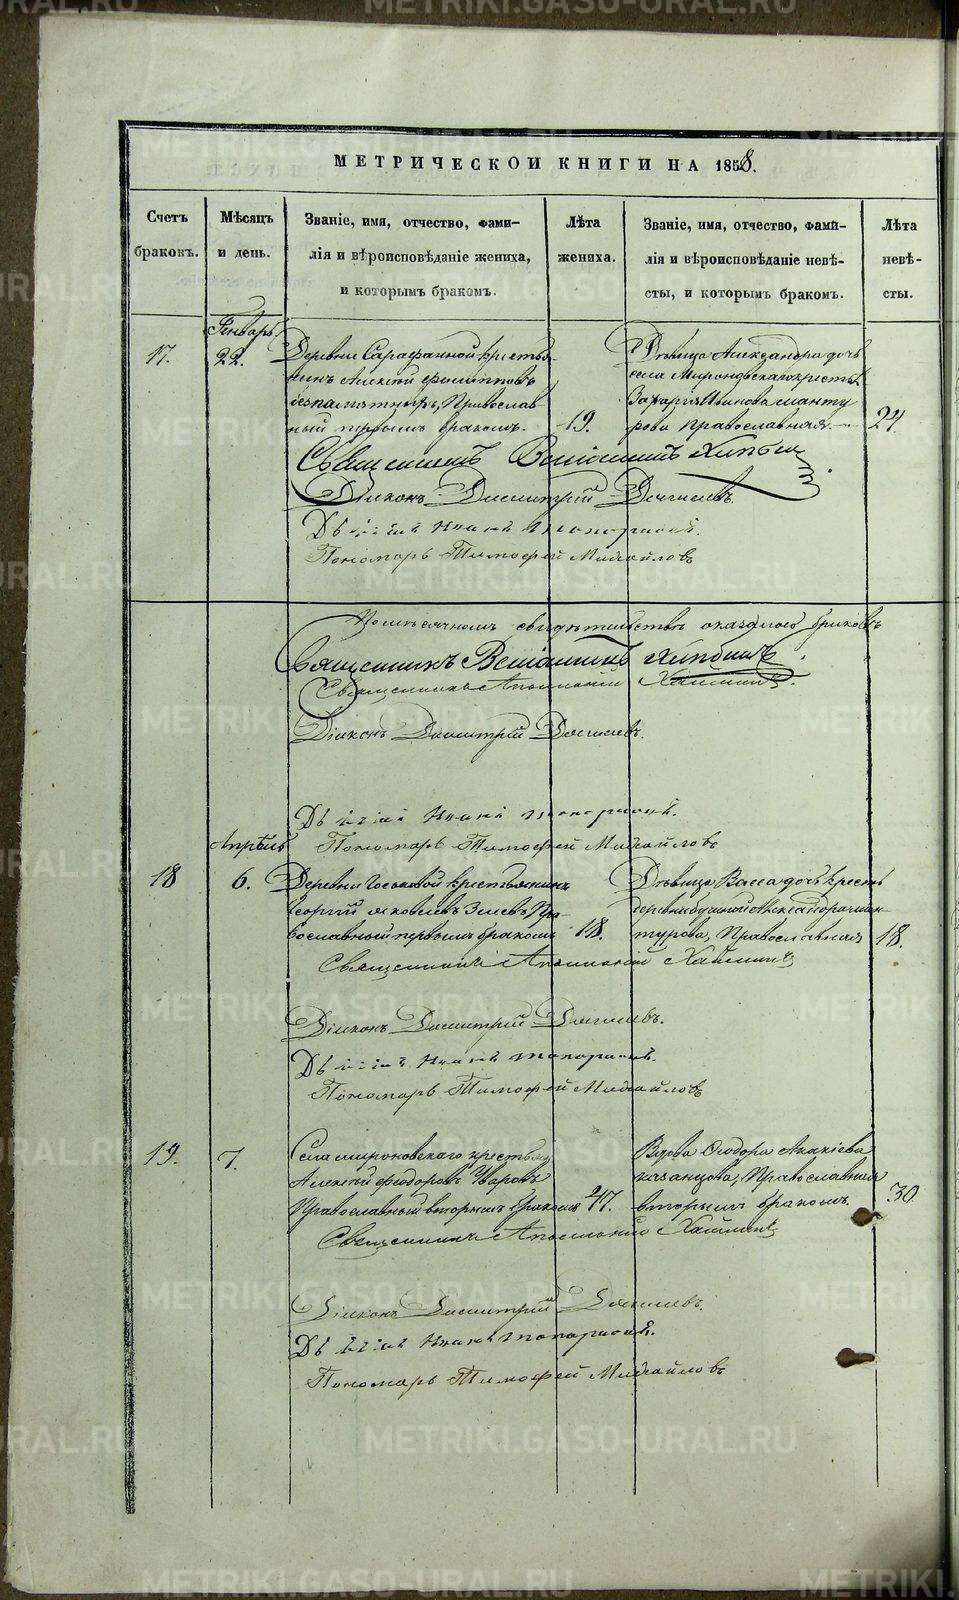 МЕТРИЧЕСКОИ КНИГИ НА 1858.
Счетъ браковъ.
Мѣсяцъ и день.
Званіе, имя, отчество, фами-
лія и вѣроисповѣданіе жениха,
и которымъ бракомъ.
Лѣта
жениха.
Званіе, имя, отчество, фами-
лія и вѣроисповѣданіе невѣ-
сты, и которымъ бракомъ.
Лѣта
невѣ-
сты.
Генварь
17.
22.
Деревни Сарафанной крестья
нинъ Алексѣй Филипповъ
безпамятныхъ, Православ-
ный первымъ бракомъ.
19.
Дѣвица Александра дочь
села Мироновскаго крестья
Захарія Иванова манту
рова православная.
24
Священникъ Веніаминъ
Діаконъ Димитрій Дягилевъ.
Дьячекъ Иванъ Топорковъ.
Пономарь Тимофей Михайловъ
свидѣтельствѣ браковъ
Священникъ Веніаминъ
Священникъ Аполлоній
Діаконъ Димитрій Дягилевъ.
Дьячекъ Иванъ Топорковъ.
Пономарь Тимофей Михайловъ
Апрѣль
18
6.
Деревни крестьянинъ
Георгій Яковлевъ Пра-
вославный первымъ бракомъ
18.
Дѣвица Васса дочь кресть
деревни Александра ман-
турова, Православная
18.
Священникъ Аполлоній
Діаконъ Димитрій Дягилевъ.
Дьячекъ Иванъ Топорковъ.
Пономарь Тимофей Михайловъ
19.
7.
Села мироновскаго крестья
Алексѣй Федоровъ Уваровъ
Православный вторымъ бракомъ
47.
Вдова Феодора Акакіева
казанцова, Православная
вторымъ бракомъ.
30
Священникъ Аполлоній
Діаконъ Димитрій Дягилевъ.
Дьячекъ Иванъ Топорковъ.
Пономарь Тимофей Михайловъ
METRIKI.GASO-URAL.RU